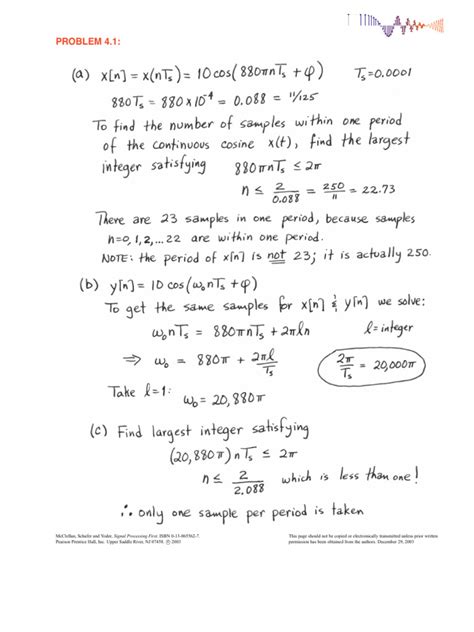 PROBLEM 4.1:
(a) x[n] = x(nTs) = 10 cos(880πnTs + φ)   Ts=0.0001
880Ts = 880×10⁻⁴ = 0.088 = 11/125
To find the number of samples within one period
of the continuous cosine x(t), find the largest
integer satisfying 880πnTs ≤ 2π
n ≤ 2/0.088 = 250/11 = 22.73
There are 23 samples in one period, because samples
n=0,1,2,...22 are within one period.
NOTE: the period of x[n] is not 23; it is actually 250.
(b) y[n] = 10 cos(ω₀nTs + φ)
To get the same samples for x[n] & y[n] we solve:
ω₀nTs = 880πnTs + 2πℓn   ℓ=integer
⇒ ω₀ = 880π + 2πℓ/Ts   2π/Ts = 20,000π
Take ℓ=1:
ω₀ = 20,880π
(c) Find largest integer satisfying
(20,880π)nTs ≤ 2π
n ≤ 2/2.088 which is less than one!
∴ only one sample per period is taken
McClellan, Schafer and Yoder, Signal Processing First, ISBN 0-13-065562-7.
Pearson Prentice Hall, Inc. Upper Saddle River, NJ 07458. © 2003
This page should not be copied or electronically transmitted unless prior written
permission has been obtained from the authors. December 29, 2003